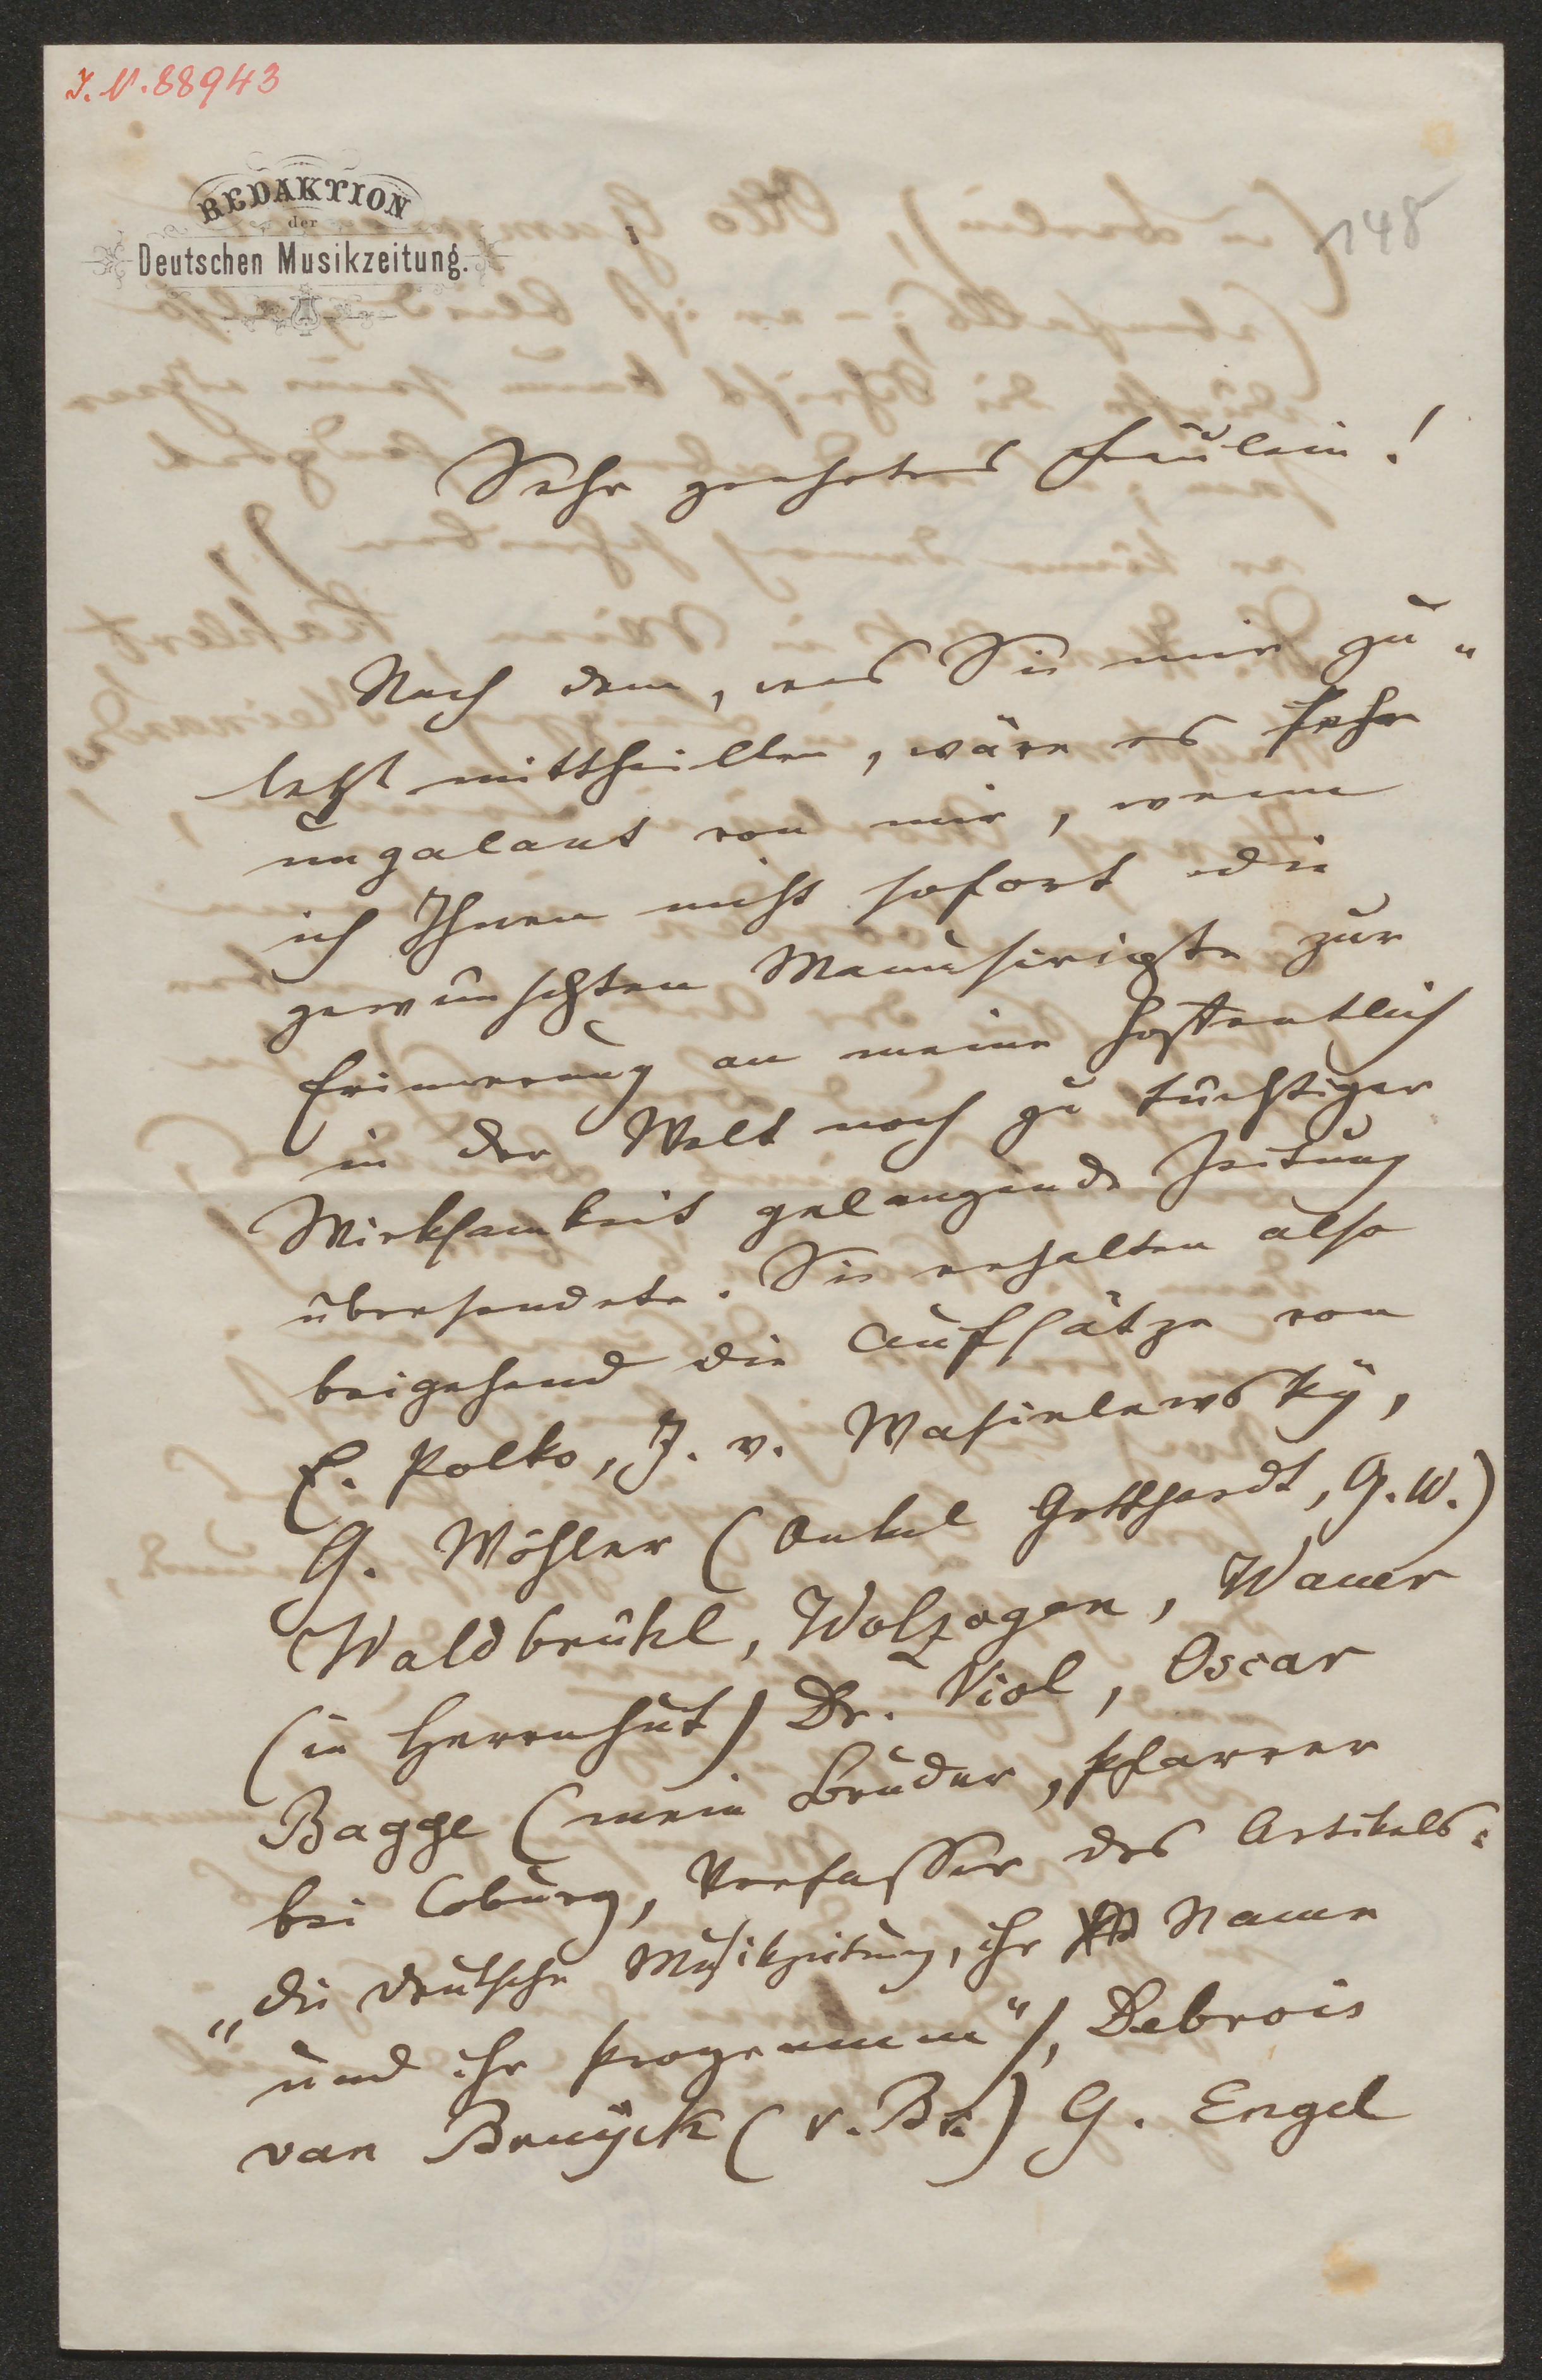 I. N. 88943
148
REDAKTION
der
Deutschen Musikzeitung.
Sehr geehrtes Fräulein!
Nach dem, was Sie mir zu„
letzt mittheilten, wäre es sehr
ungalant von mir, wenn
ich Ihnen nicht sofort die
gewünschten Manuscripte zur
Erinnerung an meine hoffentlich
in der Welt noch zu tüchtiger
Wirksamkeit gelangende Zeitung
übersendete. Sie erhalten also
beigehend die Aufsätze von
E. Polko, J. v. Wasielewsky,
G. Wöhler (Onkel Gotthardt, G. W.)
Waldbrühl, Wolzogen, Wauer
(in Herrnhut) Dr. Viol, Oscar
Bagge (mein Bruder, Pfarrer
bei Coburg, Verfasser des Artikels:
„die deutsche Musikzeitung, ihr Name
und ihr Programm"), Debrois
van Bruÿck (v. Br.) G. Engel